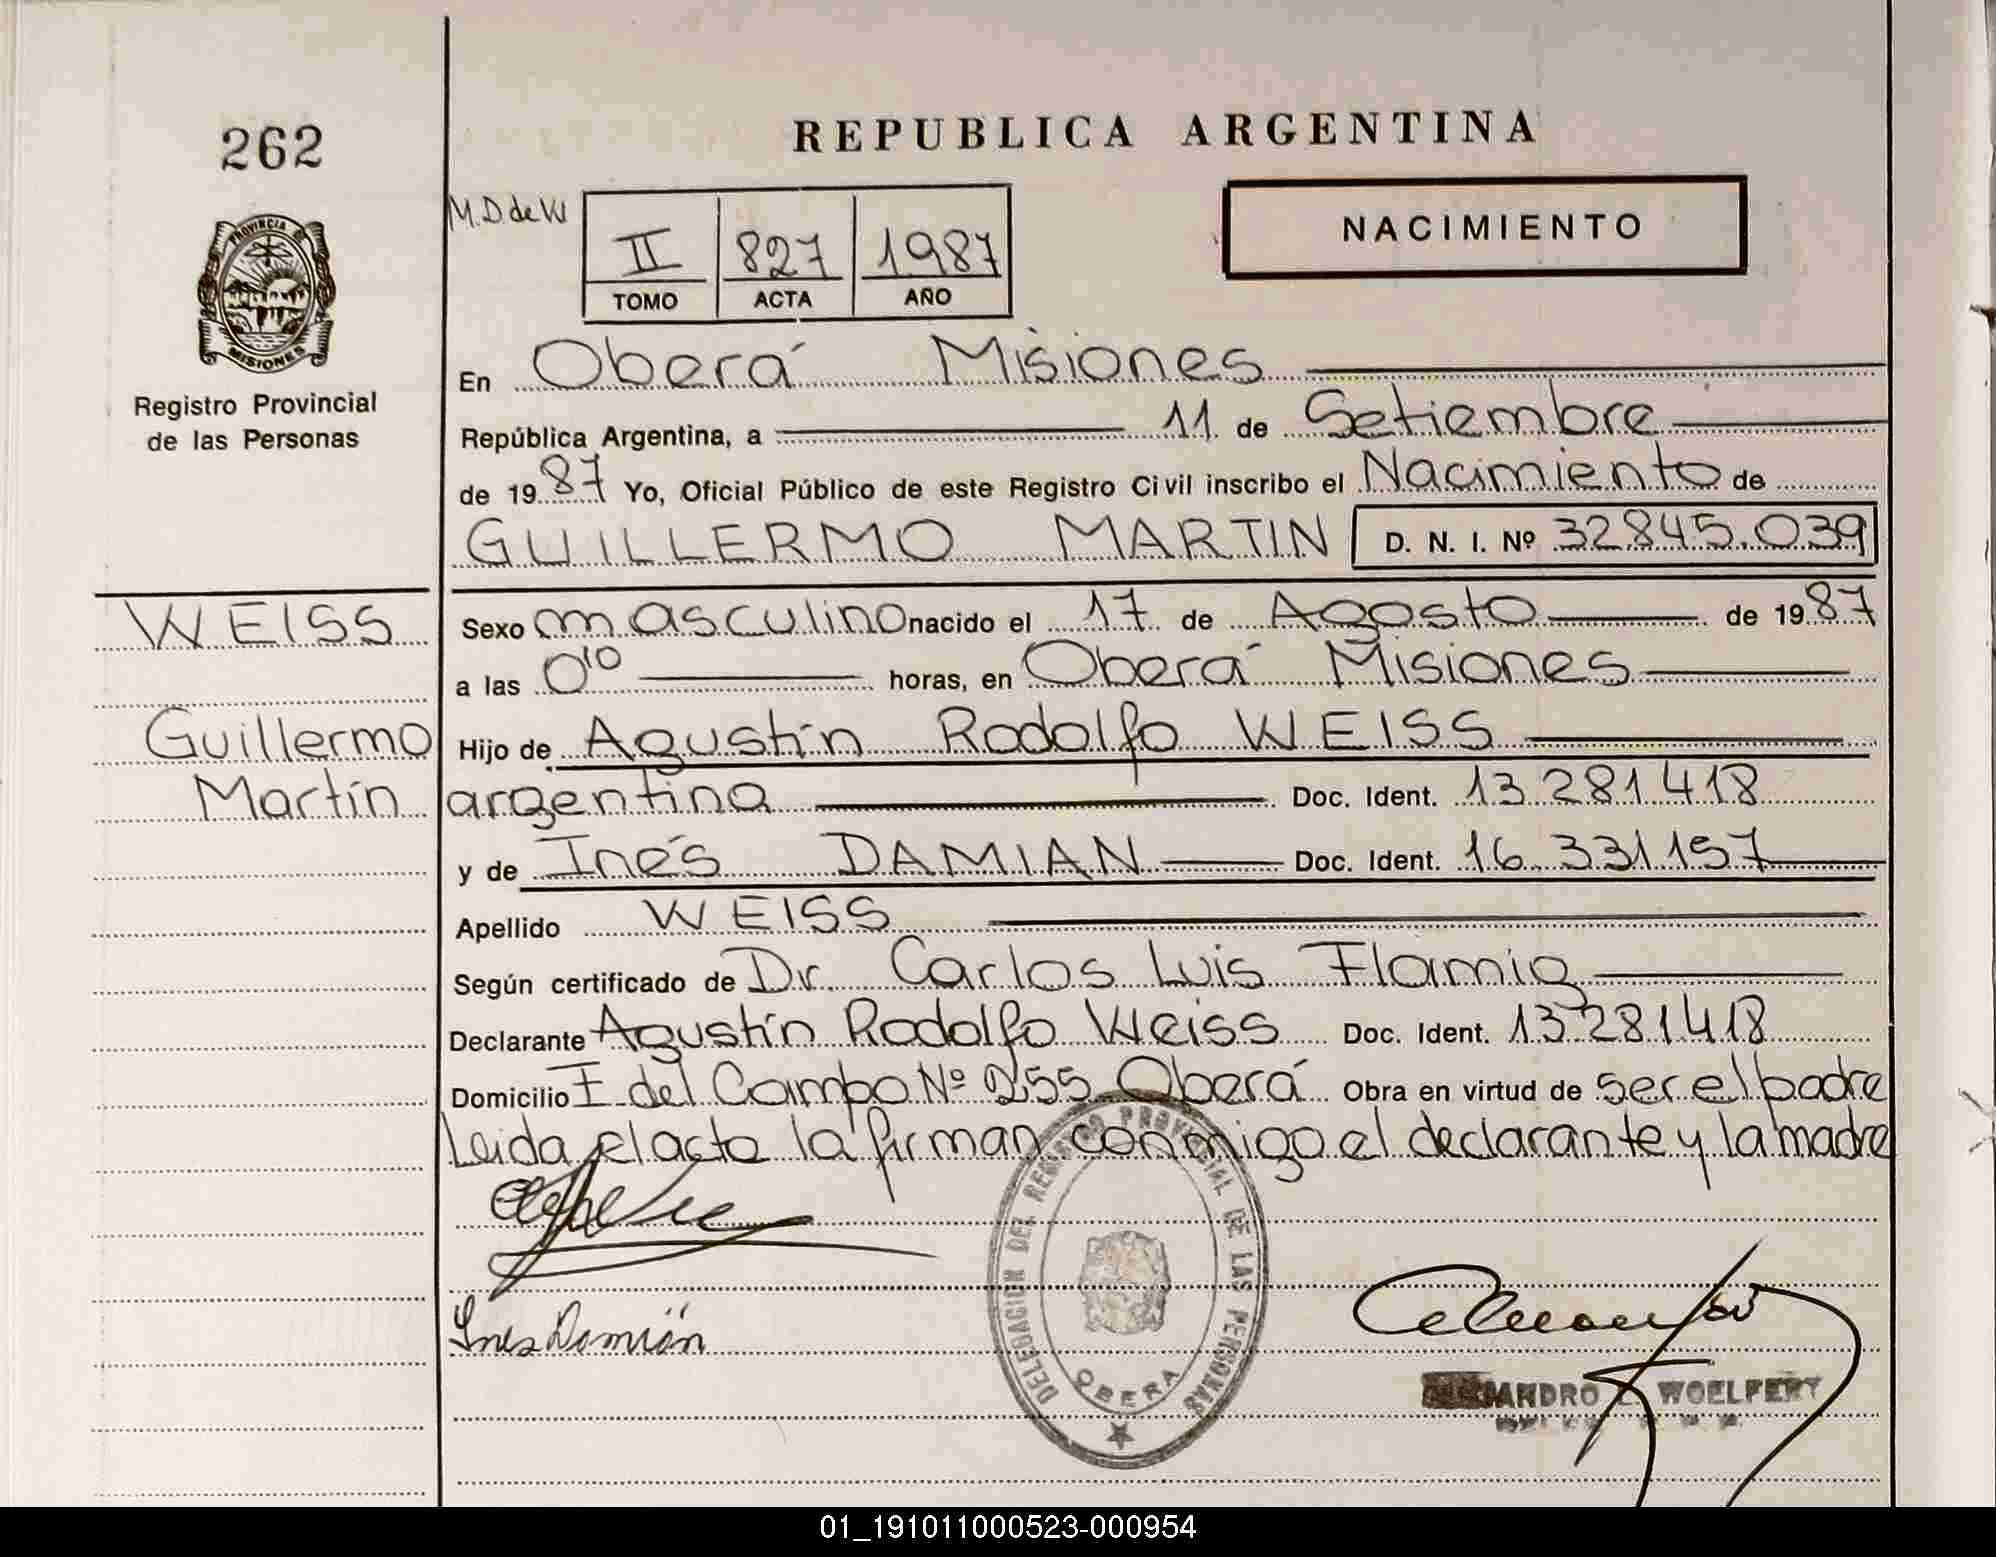 262
REPUBLICA ARGENTINA
M.D. de W
II 827 1987
TOMO ACTA AÑO
NACIMIENTO
PROVINCIA DE
MISIONES
Registro Provincial
de las Personas
En Oberá Misiones
República Argentina, a 11 de Setiembre
de 1987 Yo, Oficial Público de este Registro Civil inscribo el Nacimiento de
GUILLERMO MARTIN D. N. I. Nº 32845.039
WEISS
Guillermo
Martín
Sexo masculino nacido el 17 de Agosto de 1987
a las 0'10 horas, en Oberá Misiones
Hijo de Agustín Rodolfo WEISS
argentina Doc. Ident. 13 281 418
y de Inés DAMIAN Doc. Ident. 16 331 157
Apellido WEISS
Según certificado de Dr. Carlos Luis Flamig
Declarante Agustín Rodolfo Weiss Doc. Ident. 13 281 418
Domicilio I del Campo Nº 255 Oberá Obra en virtud de ser el padre
Leida el acta la firman conmigo el declarante y la madre
Inés Damián
DELEGACION DEL REGISTRO PROVINCIAL DE LAS PERSONAS
OBERA
WOELFERT
01_191011000523-000954